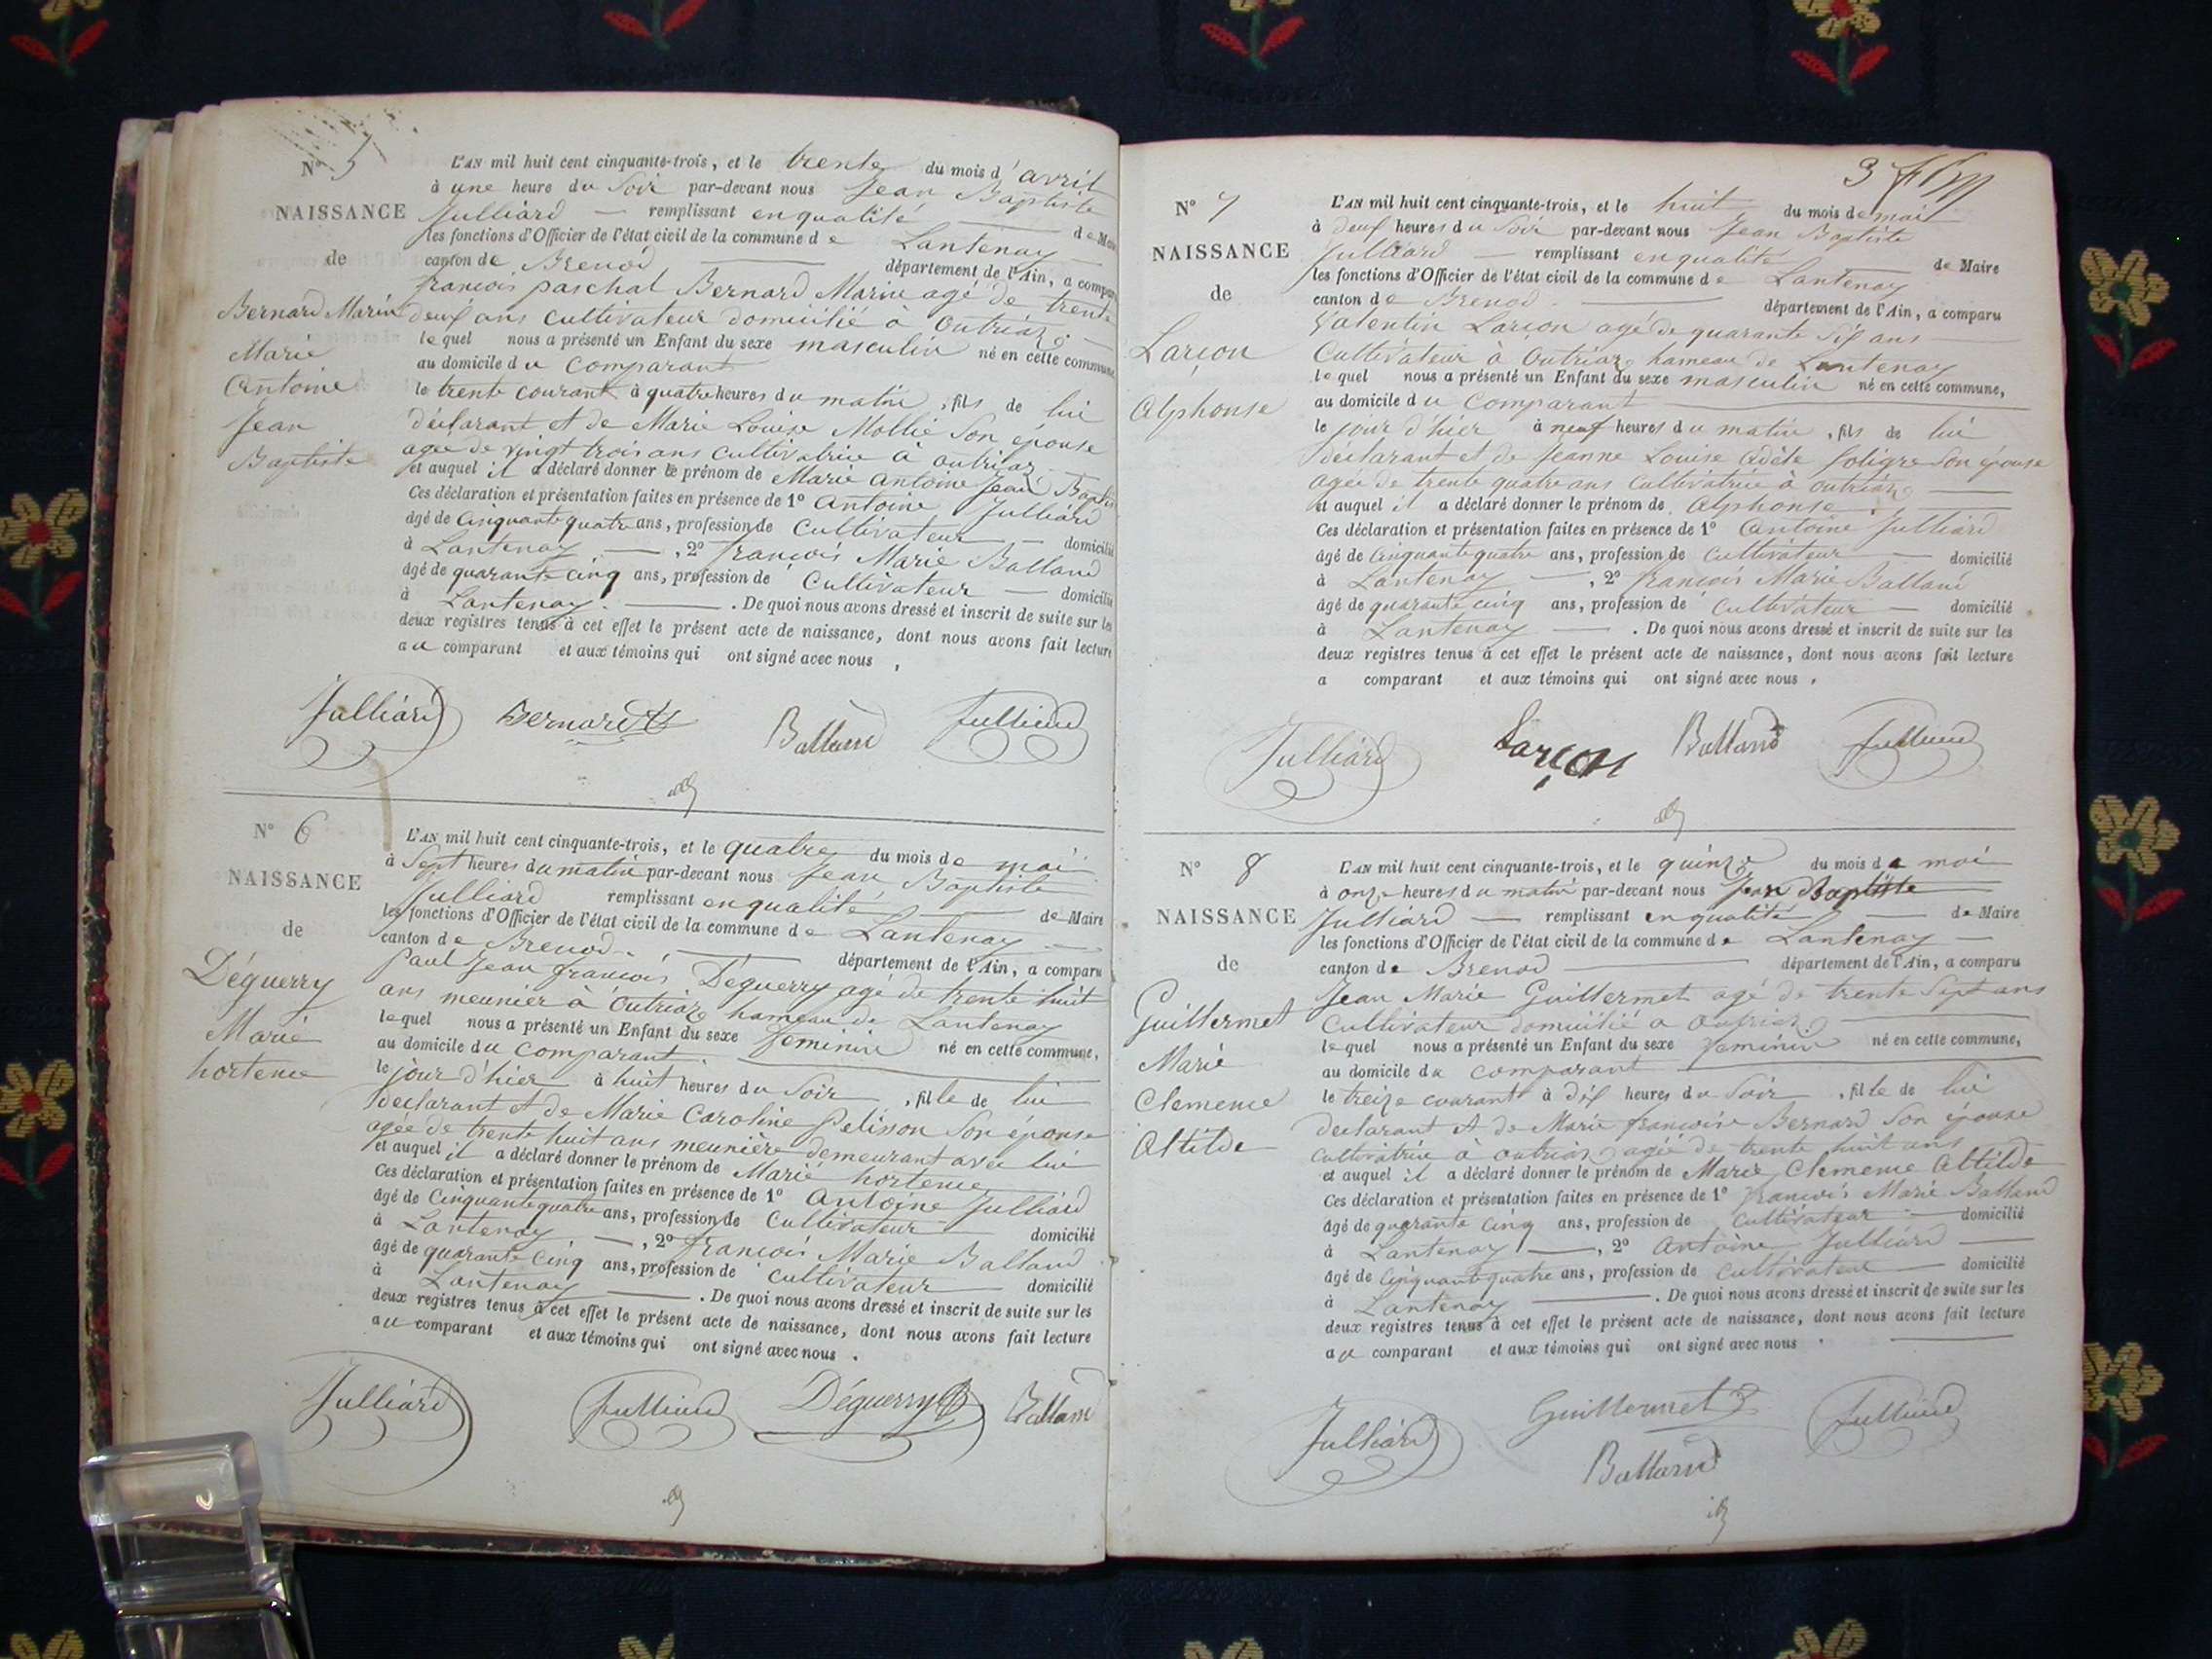 N° 5
NAISSANCE
de
Bernard Marin
Marie
Antoine
Jean
Baptiste
L'AN mil huit cent cinquante-trois, et le trente du mois d'avril
à une heure du Soir par-devant nous Jean Baptiste
Julliard — remplissant en qualité — de Maire
les fonctions d'Officier de l'état civil de la commune de Lantenay —
canton de Brenod — département de l'Ain, a comparu
françois paschal Bernard Marin agé de trente
deux ans cultivateur domicilié à Outriaz. —
lequel nous a présenté un Enfant du sexe masculin né en cette commune,
au domicile du Comparant
le trente courant à quatre heures du matin, fils de lui
déclarant et de Marie Louise Mollie Son épouse
agée de vingt trois ans cultivatrice à outriaz
et auquel il a déclaré donner le prénom de Marie Antoine Jean Baptiste
Ces déclaration et présentation faites en présence de 1° Antoine Julliard
âgé de Cinquante quatre ans, profession de Cultivateur — domicilié
à Lantenay —, 2° françois Marie Balland
âgé de quarante cinq ans, profession de Cultivateur — domicilié
à Lantenay. — . De quoi nous avons dressé et inscrit de suite sur les
deux registres tenus à cet effet le présent acte de naissance, dont nous avons fait lecture
au comparant et aux témoins qui ont signé avec nous,
Julliard Bernard Balland Julliard
N° 6
NAISSANCE
de
Déguerry
Marie
hortence
L'AN mil huit cent cinquante-trois, et le quatre du mois de mai
à Sept heures du matin par-devant nous Jean Baptiste
Julliard remplissant en qualité — de Maire
les fonctions d'Officier de l'état civil de la commune de Lantenay —
canton de Brenod. — département de l'Ain, a comparu
Paul Jean françois Déguerry agé de trente huit
ans meunier à Outriaz hameau de Lantenay
lequel nous a présenté un Enfant du sexe feminin né en cette commune,
au domicile du Comparant. —
le jour d'hier à huit heures du Soir, fille de lui
declarant et de Marie Caroline Pelisson Son épouse
agée de trente huit ans meunière demeurant avec lui
et auquel il a déclaré donner le prénom de Marie hortence
Ces déclaration et présentation faites en présence de 1° Antoine Julliard
âgé de Cinquante quatre ans, profession de Cultivateur domicilié
à Lantenay —, 2° françois Marie Balland
âgé de quarante Cinq ans, profession de cultivateur — domicilié
à Lantenay — . De quoi nous avons dressé et inscrit de suite sur les
deux registres tenus à cet effet le présent acte de naissance, dont nous avons fait lecture
au comparant et aux témoins qui ont signé avec nous .
Julliard Julliard Déguerry Balland
3
N° 7
NAISSANCE
de
Larçon
Alphonse
L'AN mil huit cent cinquante-trois, et le huit du mois de mai
à deux heures du Soir par-devant nous Jean Baptiste
Julliard — remplissant en qualité — de Maire
les fonctions d'Officier de l'état civil de la commune de Lantenay
canton de Brenod. — département de l'Ain, a comparu
Valentin Larçon agé de quarante Six ans —
Cultivateur à Outriaz hameau de Lantenay
lequel nous a présenté un Enfant du sexe masculin né en cette commune,
au domicile du Comparant —
le jour d'hier à neuf heures du matin, fils de lui
déclarant et de Jeanne Louise Adèle Son épouse
agée de trente quatre ans Cultivatrice à outriaz —
et auquel il a déclaré donner le prénom de Alphonse. —
Ces déclaration et présentation faites en présence de 1° Antoine Julliard
âgé de Cinquante quatre ans, profession de Cultivateur — domicilié
à Lantenay —, 2° françois Marie Balland
âgé de quarante cinq ans, profession de Cultivateur — domicilié
à Lantenay — . De quoi nous avons dressé et inscrit de suite sur les
deux registres tenus à cet effet le présent acte de naissance, dont nous avons fait lecture
a comparant et aux témoins qui ont signé avec nous .
Julliard Larçon Balland Julliard
N° 8
NAISSANCE
de
Guillermet
Marie
Clemence
Altilde
L'AN mil huit cent cinquante-trois, et le quinze du mois de mai
à onze heures du matin par-devant nous Jean Baptiste
Julliard — remplissant en qualité — de Maire
les fonctions d'Officier de l'état civil de la commune de Lantenay —
canton de Brenod — département de l'Ain, a comparu
Jean Marie Guillermet agé de trente Sept ans
Cultivateur domicilié a Outriaz. —
lequel nous a présenté un Enfant du sexe feminin né en cette commune,
au domicile du comparant —
le treize courant à dix heures du Soir, fille de lui
declarant et de Marie françoise Bernard Son épouse
cultivatrice à outriaz agée de trente huit ans
et auquel il a déclaré donner le prénom de Marie Clemence Altilde
Ces déclaration et présentation faites en présence de 1° françois Marie Balland
âgé de quarante cinq ans, profession de cultivateur — domicilié
à Lantenay —, 2° Antoine Julliard —
âgé de Cinquante quatre ans, profession de cultivateur — domicilié
à Lantenay — . De quoi nous avons dressé et inscrit de suite sur les
deux registres tenus à cet effet le présent acte de naissance, dont nous avons fait lecture
au comparant et aux témoins qui ont signé avec nous . —
Julliard Guillermet Julliard
Balland